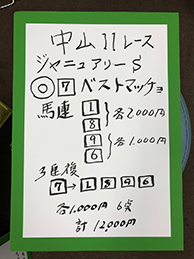 中山11レース
ジャニュアリーS
◎ 7 ベストマッチョ
馬連 1
8 各2,000円
9
6 各1,000円
3連複
7 → 1 8 9 6
各1,000円 6点
計 12,000円